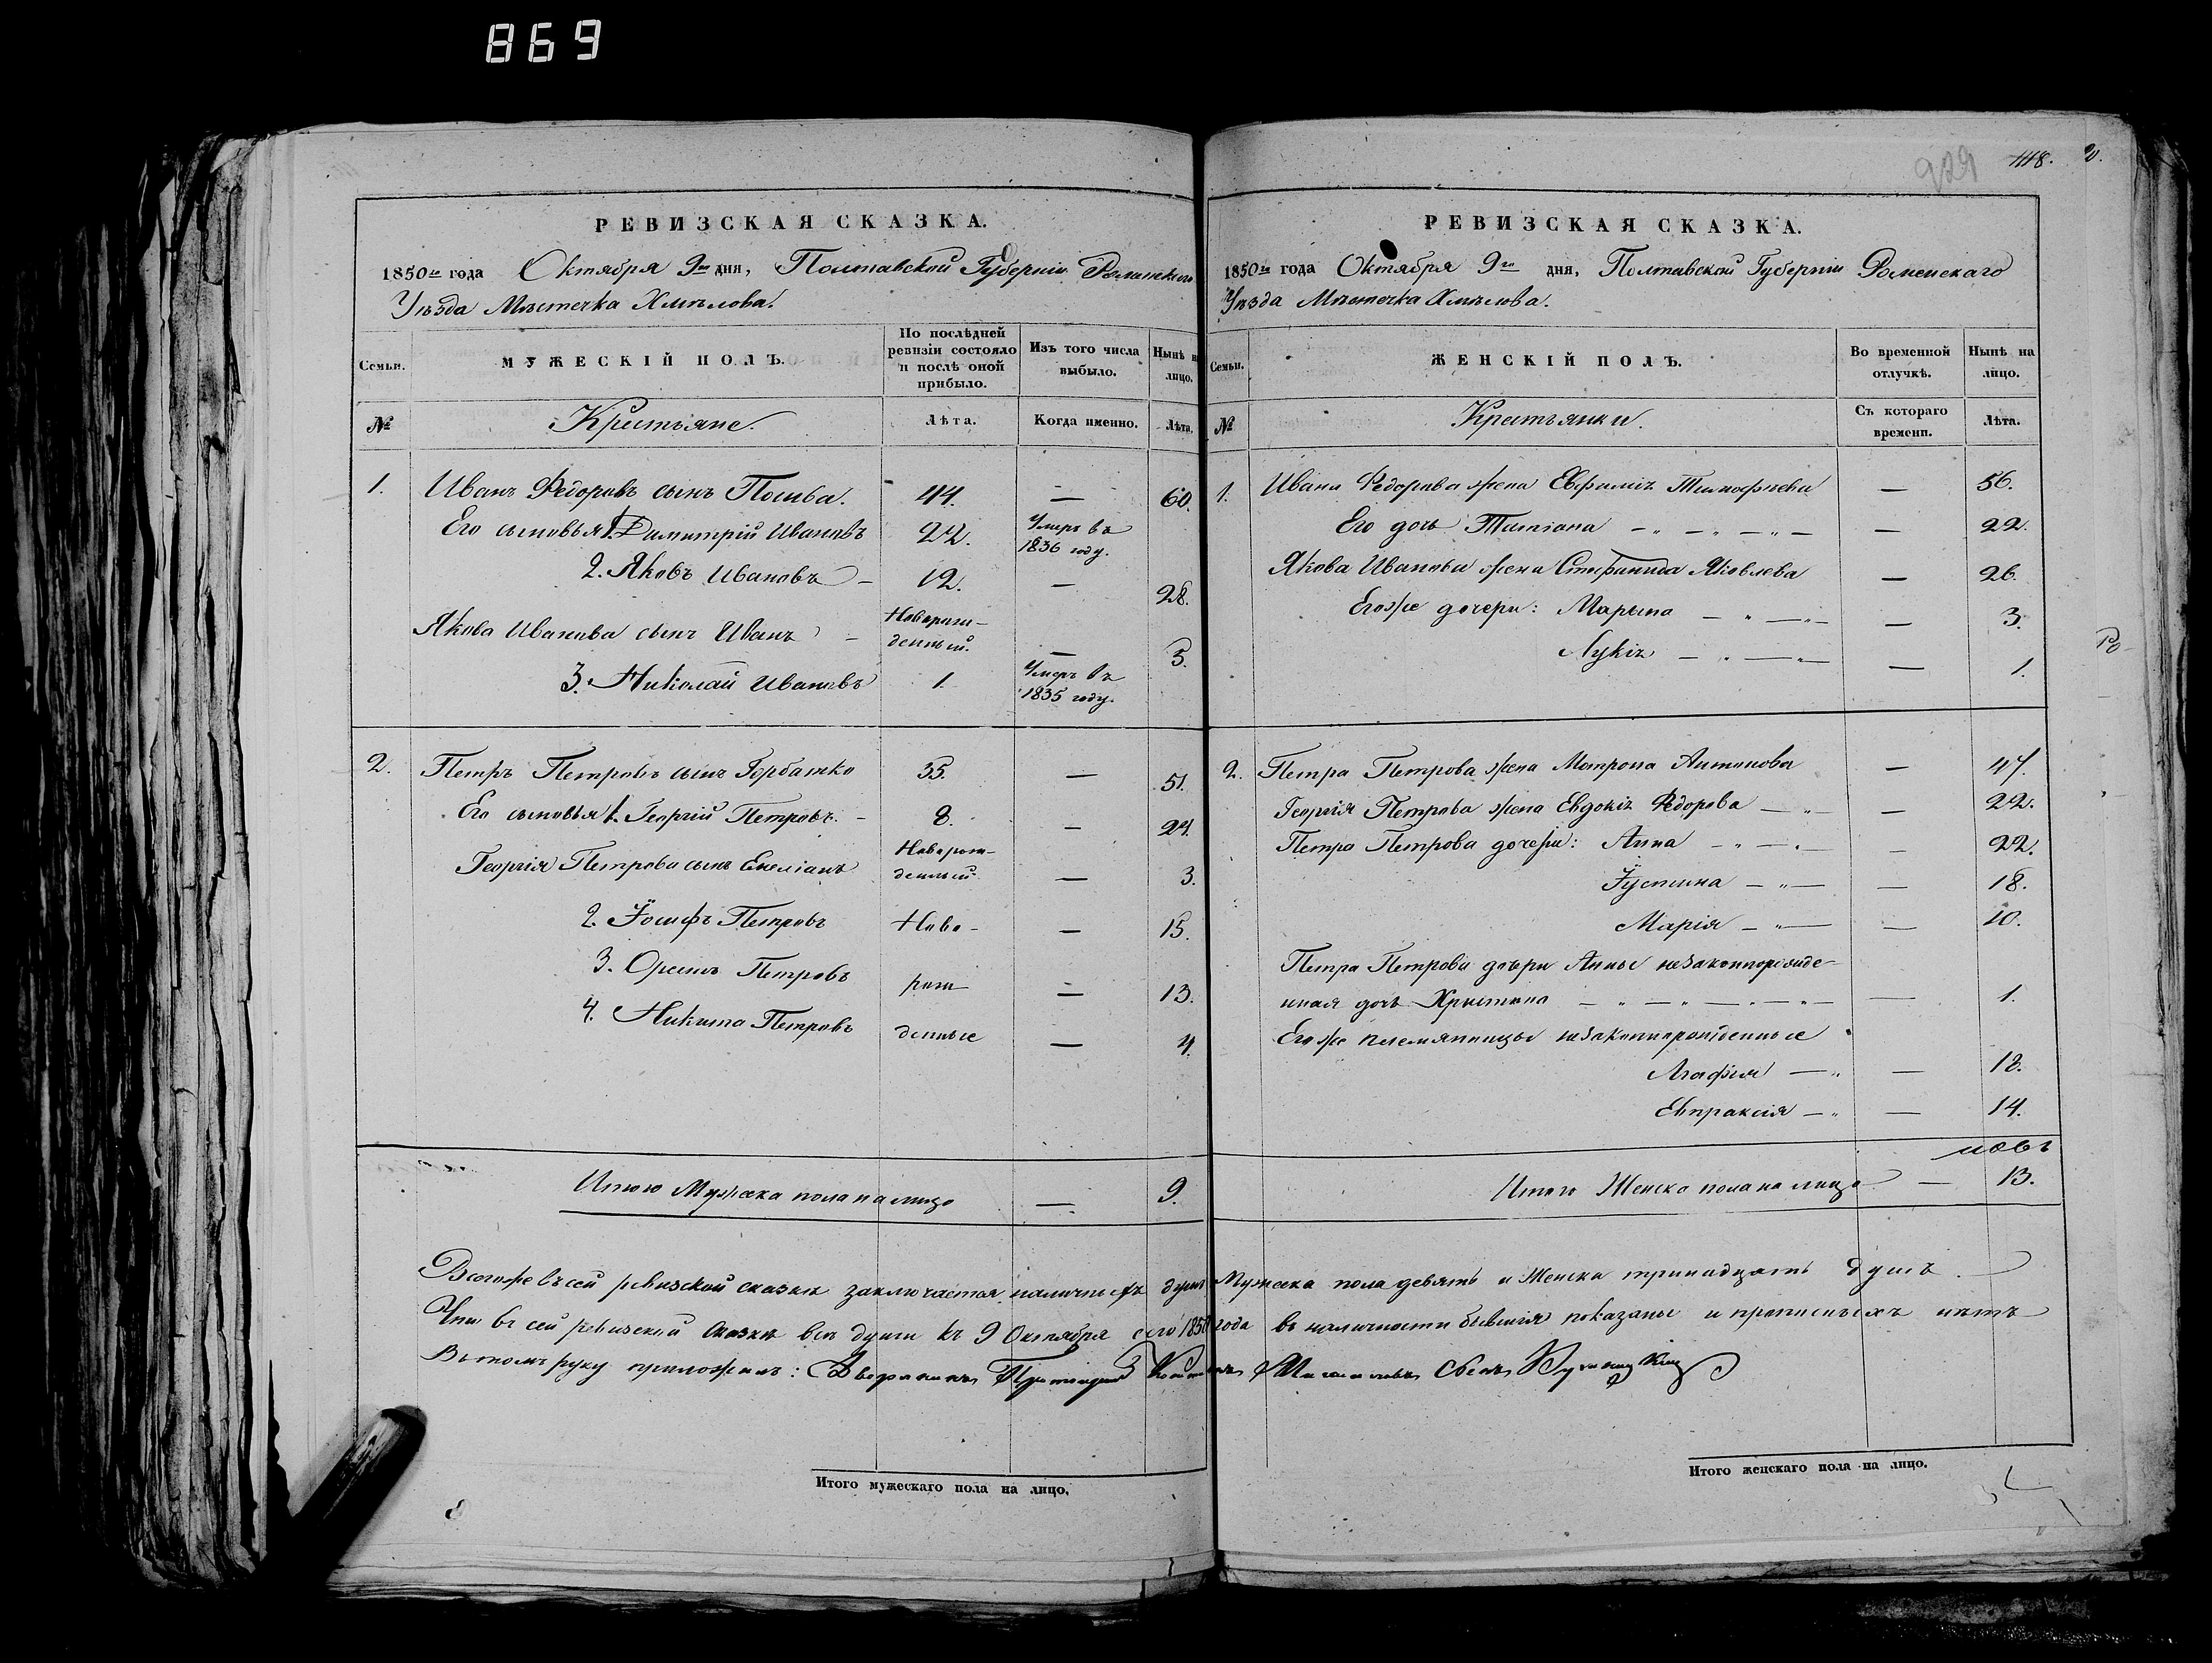 869
929
118.
РЕВИЗСКАЯ СКАЗКА.
1850го года Октября 9го дня, Полтавской Губерніи Роменскаго
Уѣзда Мѣстечка Хмѣлова.
Семьи.
МУЖЕСКІЙ ПОЛЪ.
По послѣдней ревизіи состояло и послѣ оной прибыло.
Изъ того числа выбыло.
Нынѣ на лицо.
№
Крестьяне.
Лѣта.
Когда именно.
Лѣта.
1. Иванъ Федоровъ сынъ 44. — 60.
Его сыновья 1. Димитрій Ивановъ 22. Умеръ въ 1836 году.
2. Яковъ Ивановъ — 12. — 28.
Якова Иванова сынъ Иванъ — Новорож-
денный. — 5.
3. Николай Ивановъ 1. Умеръ въ 1835 году.
2. Петръ Петровъ сынъ Горбатко 35. — 51.
Его сыновья 1. Георгій Петровъ — 8. — 24.
Георгія Петрова сынъ Емеліанъ Новорож-
денный. — 3.
2. Іосифъ Петровъ Ново- — 15.
3. Орестъ Петровъ рож — 13.
4. Никита Петровъ денные — 4.
Итого Мужеска пола на лицо — 9.
РЕВИЗСКАЯ СКАЗКА.
1850го года Октября 9го дня, Полтавской Губерніи Роменскаго
Уѣзда Мѣстечка Хмѣлова.
Семьи.
ЖЕНСКІЙ ПОЛЪ.
Во временной отлучкѣ.
Нынѣ на лицо.
№
Крестьянки.
Съ котораго времени.
Лѣта.
1. Ивана Федорова жена Евфимія Тимофѣева — 56.
Его дочь Татіана — 22.
Якова Иванова жена Стефанида Яковлева — 26.
Егоже дочери: Марина — 3.
Лукія — 1.
2. Петра Петрова жена Мотрона Антонова — 47.
Георгія Петрова жена Евдокія Федорова — 22.
Петра Петрова дочери: Анна — 22.
Іустина — 18.
Марія — 10.
Петра Петрова дочери Анны незаконнорожде-
нная дочь Христина — 1.
Егоже племянницы незаконнорожденные
Агафія — 18.
Евпраксія — 14.
Итого Женска пола на лицо — 13.
Всегоже въ сей ревизской сказкѣ заключается наличныхъ душъ Мужеска пола девять и Женска тринадцать душъ.
Что въ сей ревизской сказкѣ всѣ души къ 9 Октября сего 1850 года въ наличности бывшія показаны и прописныхъ нѣтъ
въ томъ руку приложилъ: Дворянинъ
Итого мужескаго пола на лицо.
Итого женскаго пола на лицо.